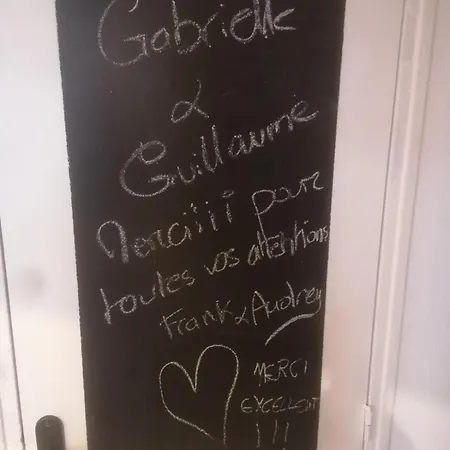 Gabrielle
&
Guillaume
Merciiii pour
toutes vos attentions
Frank & Audrey
MERCI
EXCELLENT
!!!